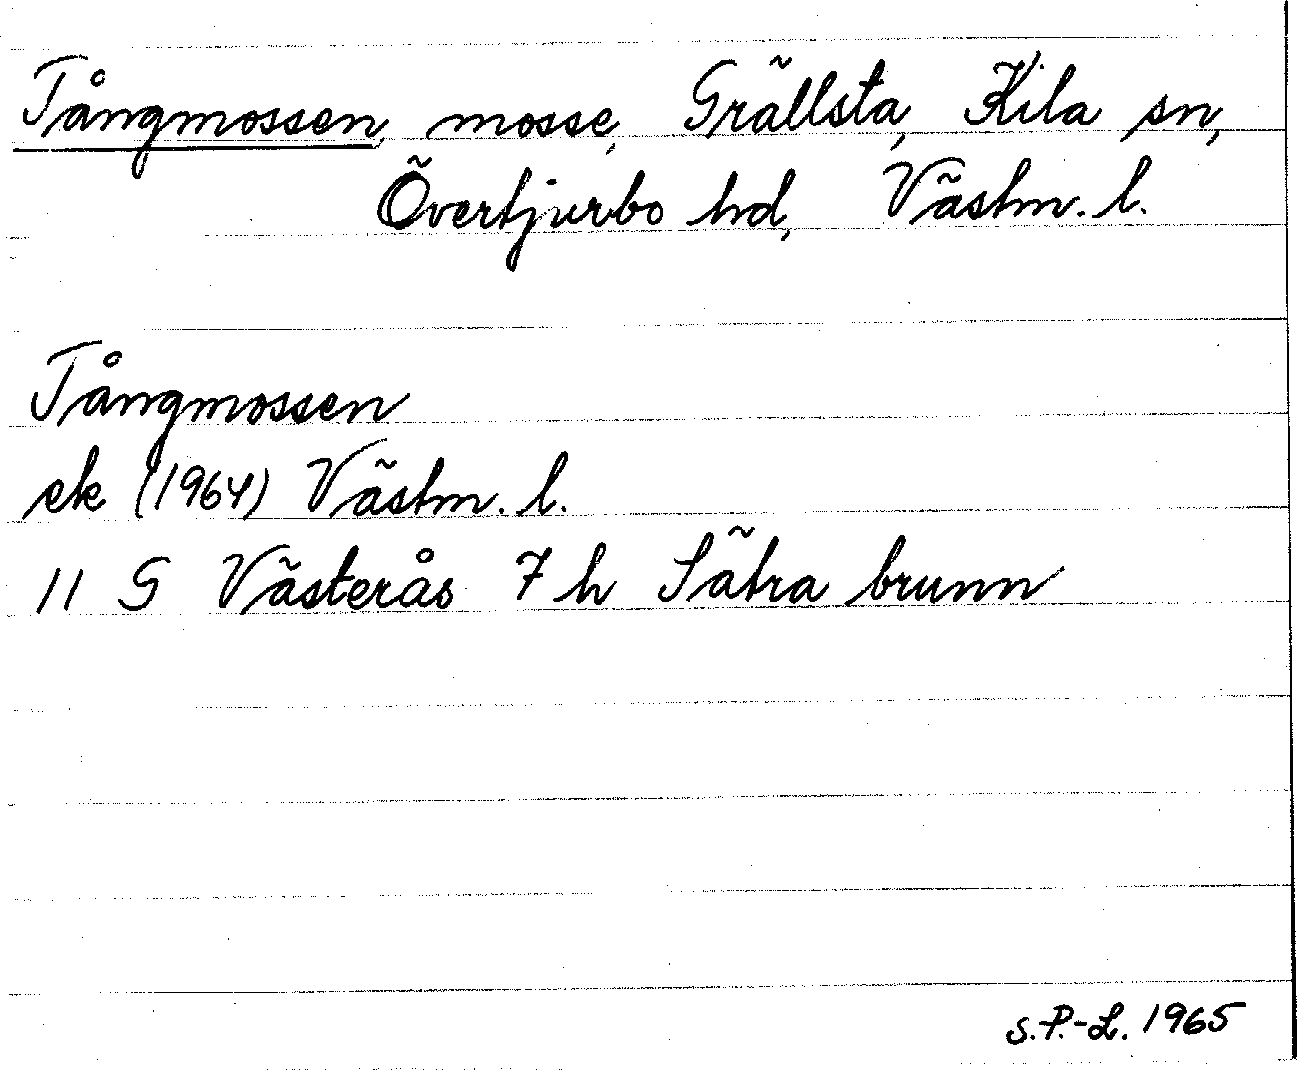 Tångmossen, mosse, Grällsta, Kila sn,
Övertjurbo hd, Västm. l.
Tångmossen
ek (1964) Västm. l.
11 G Västerås 7 h Sätra brunn
S.P.-L. 1965